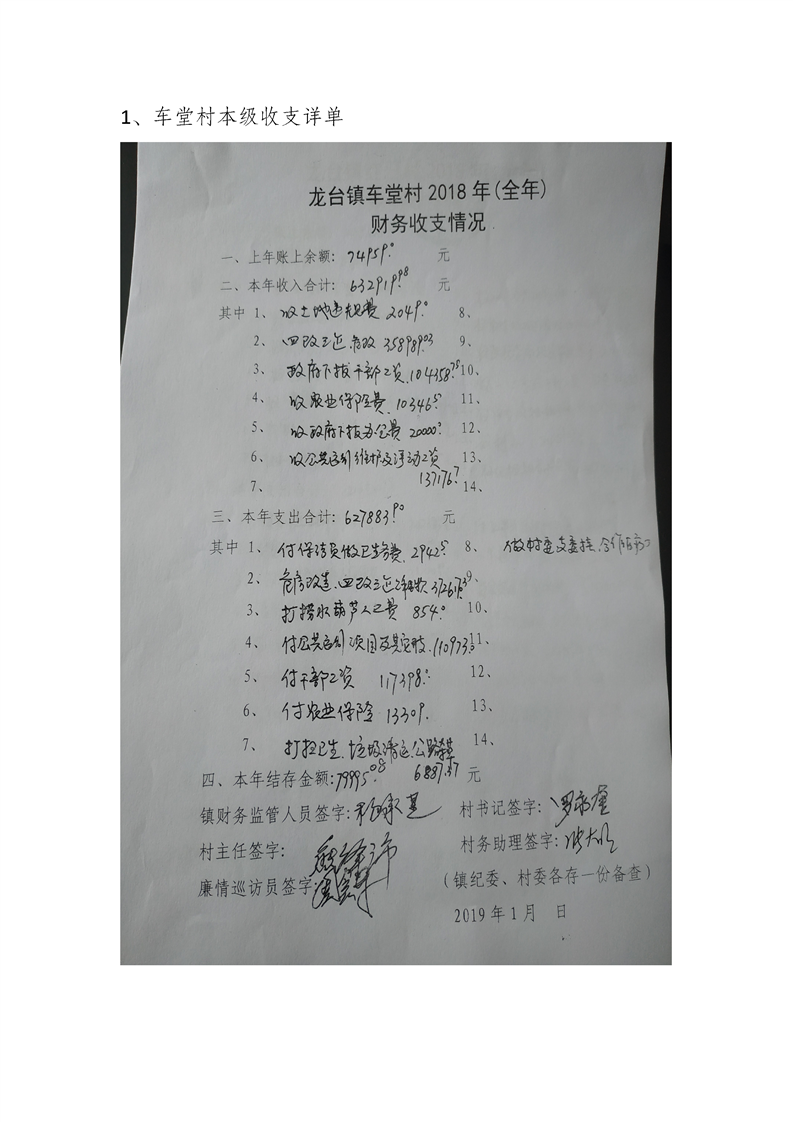 1、车堂村本级收支详单
龙台镇车堂村2018年(全年)
财务收支情况
一、上年账上余额: 74959.0 元
二、本年收入合计: 632919.98 元
其中 1、收土地违规费 2049.0 8、
2、四改三建.危改 358989.03 9、
3、政府下拨干部工资.104358.75 10、
4、收农业保险费.10346.5 11、
5、收政府下拨办公费 20000. 12、
6、收公共运行维护及活动工资 13、
7、 137176. 14、
三、本年支出合计: 627883.90 元
其中 1、付保洁员做卫生务费. 2942.5 8、做村委支委
2、危房改造.四改三建 9、
3、打捞水葫芦人工费 854.0 10、
4、付公共运行项目及其 11、
5、付干部工资 117398. 12、
6、付农业保险 13309. 13、
7、打扫卫生.垃圾清运.公路 14、
四、本年结存金额:79995.08 6887.37 元
镇财务监管人员签字: 村书记签字:
村主任签字: 村务助理签字:
廉情巡访员签字: (镇纪委、村委各存一份备查)
2019年1月 日